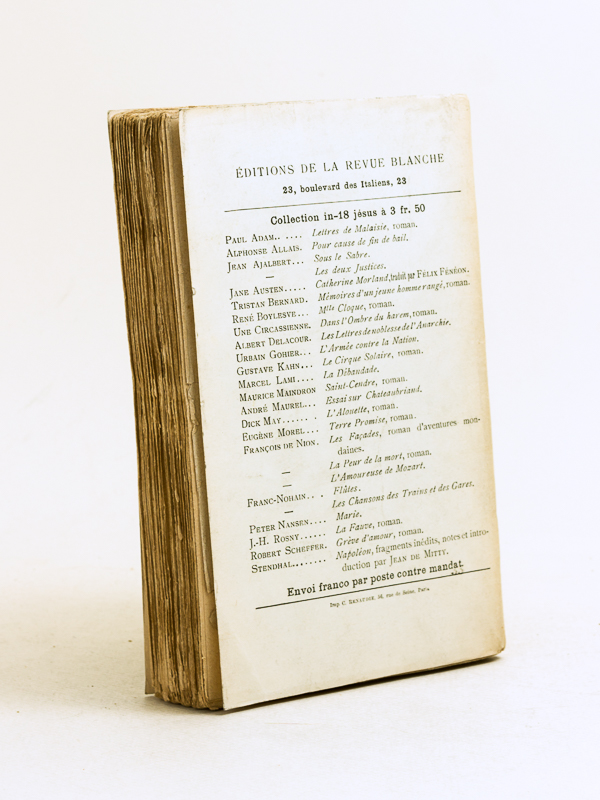 ÉDITIONS DE LA REVUE BLANCHE
23, boulevard des Italiens, 23
Collection in-18 jésus à 3 fr. 50
PAUL ADAM...... Lettres de Malaisie, roman.
ALPHONSE ALLAIS. Pour cause de fin de bail.
JEAN AJALBERT... Sous le Sabre.
— Les deux Justices.
JANE AUSTEN..... Catherine Morland, traduit par FÉLIX FÉNÉON.
TRISTAN BERNARD. Mémoires d'un jeune homme rangé, roman.
RENÉ BOYLESVE... Mlle Cloque, roman.
UNE CIRCASSIENNE. Dans l'Ombre du harem, roman.
ALBERT DELACOUR. Les Lettres de noblesse de l'Anarchie.
URBAIN GOHIER... L'Armée contre la Nation.
GUSTAVE KAHN... Le Cirque Solaire, roman.
MARCEL LAMI.... La Débandade.
MAURICE MAINDRON Saint-Cendre, roman.
ANDRÉ MAUREL... Essai sur Chateaubriand.
DICK MAY....... L'Alouette, roman.
EUGÈNE MOREL... Terre Promise, roman.
FRANÇOIS DE NION. Les Façades, roman d'aventures mon-
daines.
— La Peur de la mort, roman.
— L'Amoureuse de Mozart.
FRANC-NOHAIN... . Flûtes.
— Les Chansons des Trains et des Gares.
PETER NANSEN.... Marie.
J.-H. ROSNY...... La Fauve, roman.
ROBERT SCHEFFER. Grève d'amour, roman.
STENDHAL........ Napoléon, fragments inédits, notes et intro-
duction par JEAN DE MITTY.
Envoi franco par poste contre mandat.
Imp. C. RENAUDIE, 56, rue de Seine, Paris.